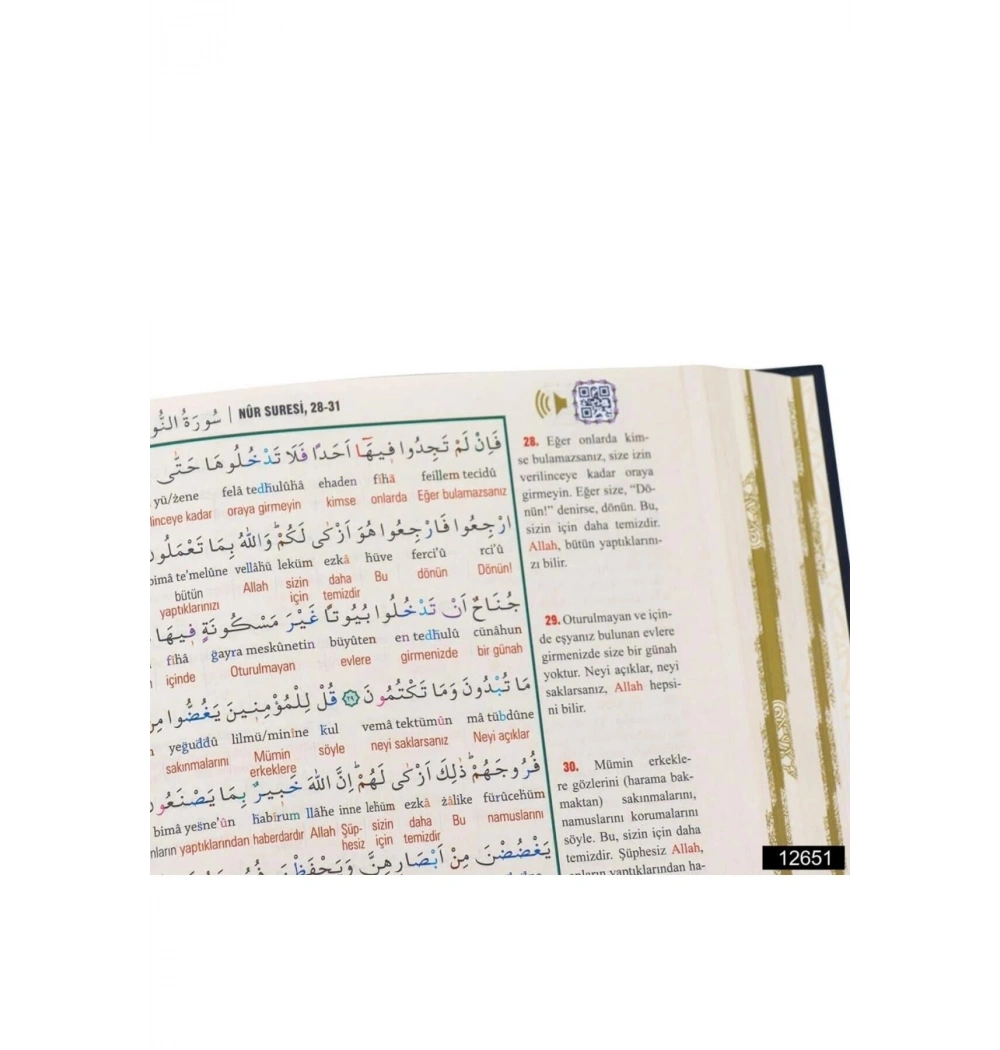 سُورَةُ النُّو | NÛR SURESİ, 28-31
فَاِنْ لَمْ تَجِدُوا ف۪يهَٓا اَحَدًا فَلَا تَدْخُلُوهَا حَتّٰى
feillem tecidû fîhâ ehaden felâ tedhulûhâ yü/zene
Eğer bulamazsanız onlarda kimse oraya girmeyin linceye kadar
ارْجِعُوا فَارْجِعُوا هُوَ اَزْكٰى لَكُمْ وَاللّٰهُ بِمَا تَعْمَلُونَ
rci'û ferci'û hüve ezkâ leküm vellâhü bimâ te'melûne
Dönün! dönün Bu daha temizdir sizin için Allah bütün yaptıklarınızı
جُنَاحٌ اَنْ تَدْخُلُوا بُيُوتًا غَيْرَ مَسْكُونَةٍ ف۪يهَا
cünâhun en tedhulû büyûten ğayra meskûnetin fîhâ
bir günah girmenizde evlere Oturulmayan içinde
مَا تُبْدُونَ وَمَا تَكْتُمُونَ ﴿٢٩﴾ قُلْ لِلْمُؤْمِن۪ينَ يَغُضُّوا مِنْ
mâ tübdûne vemâ tektümûn kul lilmü/minîne yeğuddû
Neyi açıklar neyi saklarsanız söyle Mümin erkeklere sakınmalarını
فُرُوجَهُمْ ذٰلِكَ اَزْكٰى لَهُمْ اِنَّ اللّٰهَ خَب۪يرٌ بِمَا يَصْنَعُونَ
fürûcehüm zâlike ezkâ lehüm inne llâhe habîrum bimâ yesne'ûn
namuslarını Bu daha temizdir sizin için Şüphesiz Allah yaptıklarından haberdardır nların
يَغْضُضْنَ مِنْ اَبْصَارِهِنَّ وَيَحْفَظْنَ
28. Eğer onlarda kim-
se bulamazsanız, size izin
verilinceye kadar oraya
girmeyin. Eğer size, “Dö-
nün!” denirse, dönün. Bu,
sizin için daha temizdir.
Allah, bütün yaptıklarını-
zı bilir.
29. Oturulmayan ve için-
de eşyanız bulunan evlere
girmenizde size bir günah
yoktur. Neyi açıklar, neyi
saklarsanız, Allah hepsi-
ni bilir.
30. Mümin erkekle-
re gözlerini (harama bak-
maktan) sakınmalarını,
namuslarını korumalarını
söyle. Bu, sizin için daha
temizdir. Şüphesiz Allah,
onların yaptıklarından ha-
12651